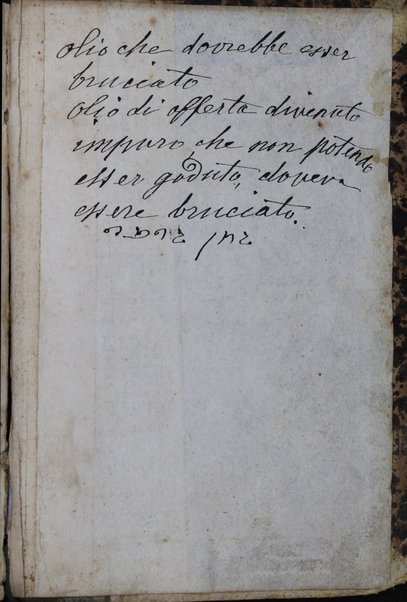 olio che dovrebbe esser
bruciato
olio di offerta divenuto
impuro, che non potendo
esser goduto, doveva
essere bruciato.